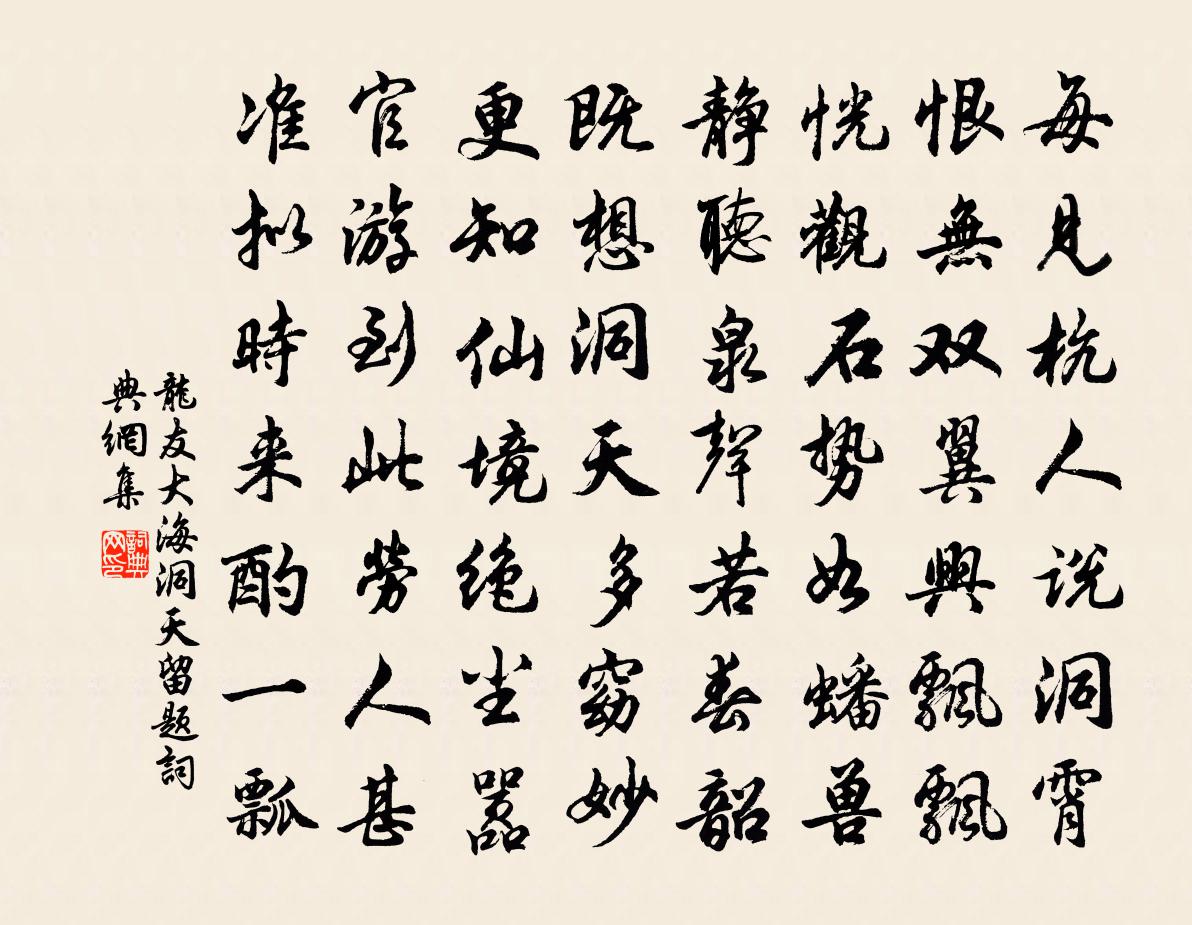 每見杭人説洞霄
恨無双翼興飄飄
恍觀石勢如蟠兽
静聽泉聲若奏韶
既想洞天多窈妙
更知仙境绝尘嚣
官游到此勞人甚
准拟時来酌一瓢
龍友大海洞天留题詞
典網集
詞典
网印